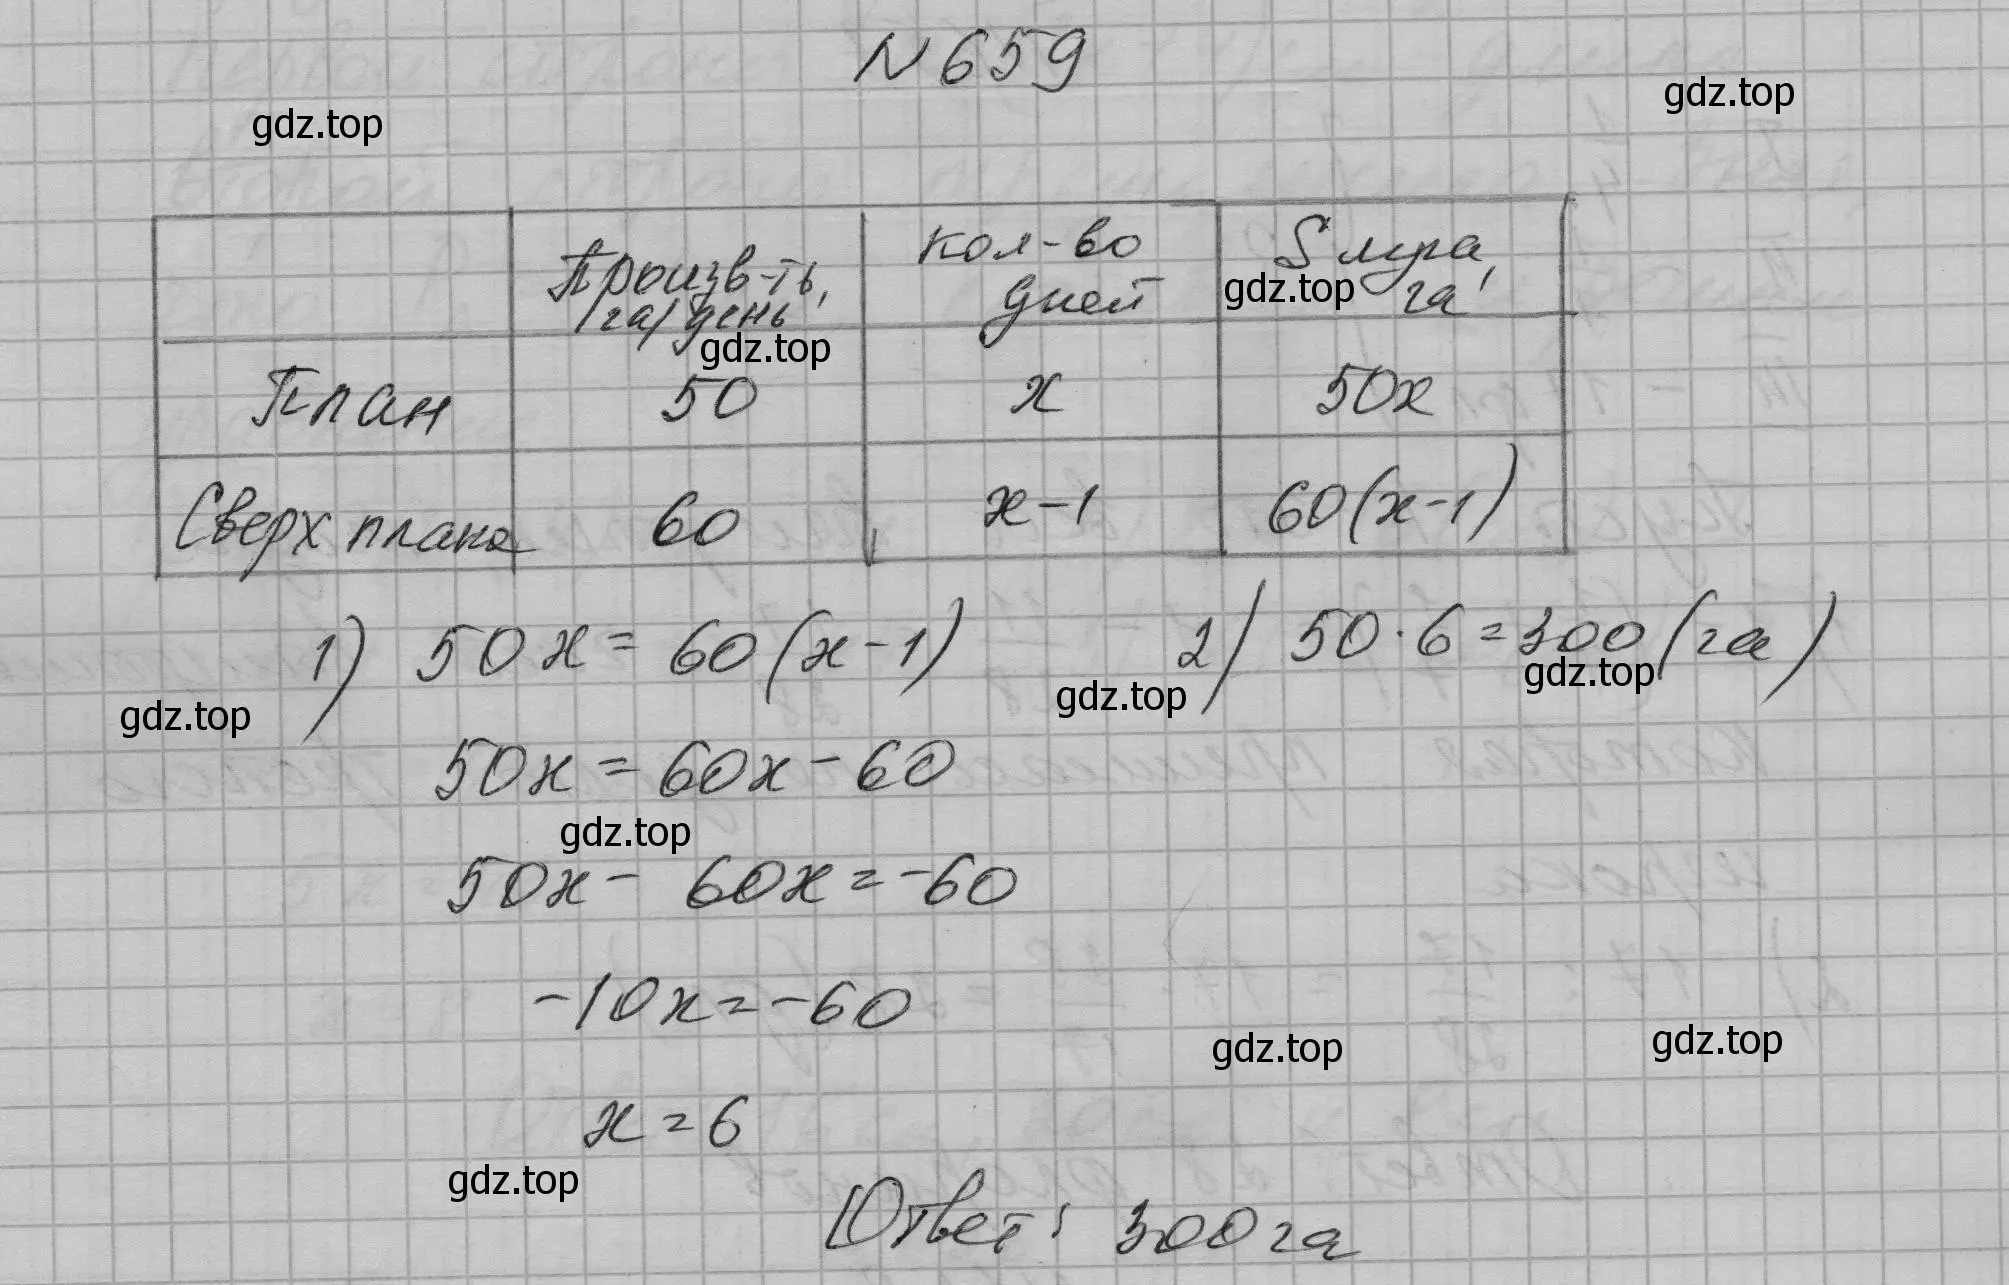 N 659
gdz.top
gdz.top
Произв-ть, га/день
кол-во дней
S луга, га
gdz.top
gdz.top
План 50 x 50x
Сверх плана 60 x-1 60(x-1)
1) 50x = 60(x-1) 2) 50·6=300(га)
gdz.top
gdz.top
gdz.top
50x=60x-60
gdz.top
50x- 60x=-60
-10x=-60
gdz.top
gdz.top
x=6
gdz.top
Ответ: 300 га